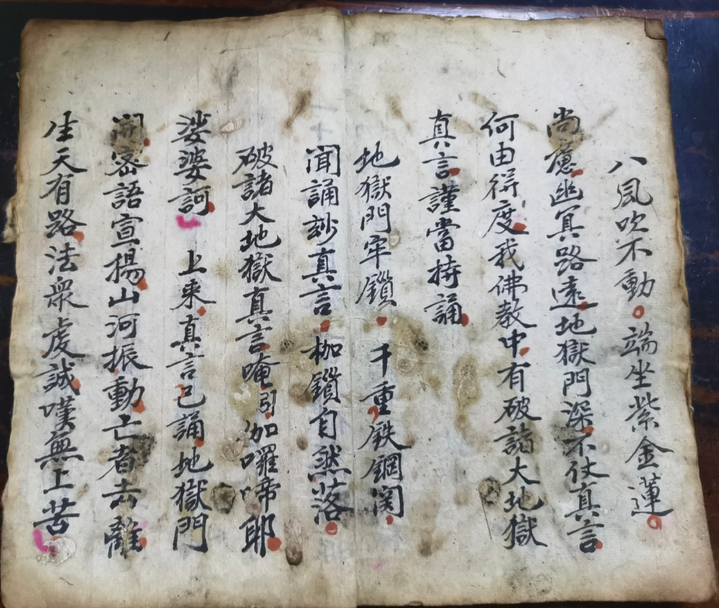 八風吹不動。端坐紫金蓮。
尚慮幽冥路遠。地獄門深。不仗真言。
何由得度。我佛教中。有破諸大地獄
真言。謹當持誦。
地獄門牢鎖。千重鉄鋼関。
聞誦玅真言。枷鎖自然落。
破諸大地獄真言。唵引伽囉啼耶。
娑婆訶 上来真言已誦。地獄門
開。密語宣揚。山河振動。亡者去離。
生天有路。法衆虔誠。嘆無上苦